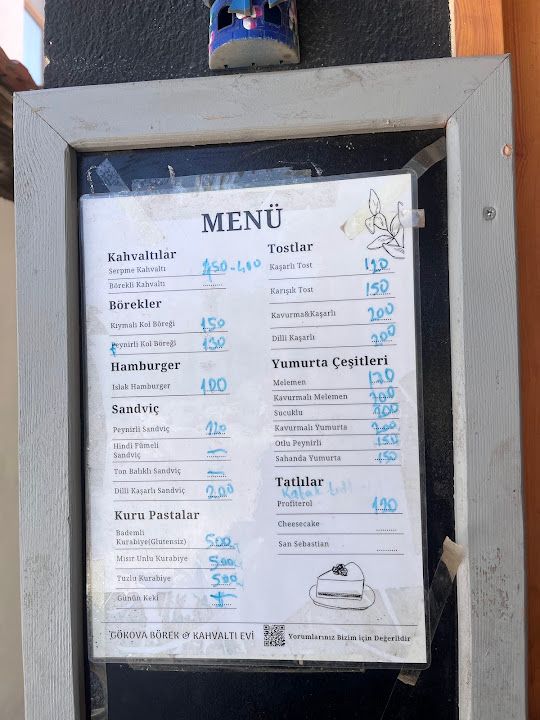 MENÜ
Kahvaltılar
Serpme Kahvaltı
Börekli Kahvaltı ........
Börekler
Kıymalı Kol Böreği 150
Peynirli Kol Böreği 130
Hamburger
Islak Hamburger 100
Sandviç
Peynirli Sandviç
Hindi Fümeli
Sandviç –
Ton Balıklı Sandviç –
Dilli Kaşarlı Sandviç 200
Kuru Pastalar
Bademli
Kurabiye(Glutensiz) 500
Mısır Unlu Kurabiye 500
Tuzlu Kurabiye 500
Günün Keki
Tostlar
Kaşarlı Tost 120
Karışık Tost 150
Kavurma&Kaşarlı 200
Dilli Kaşarlı 200
Yumurta Çeşitleri
Melemen 120
Kavurmalı Melemen 200
Sucuklu 200
Kavurmalı Yumurta 200
Otlu Peynirli 150
Sahanda Yumurta 150
Tatlılar
Profiterol 120
Cheesecake ........
San Sebastian ........
GÖKOVA BÖREK & KAHVALTI EVİ
Yorumlarınız Bizim için Değerlidir